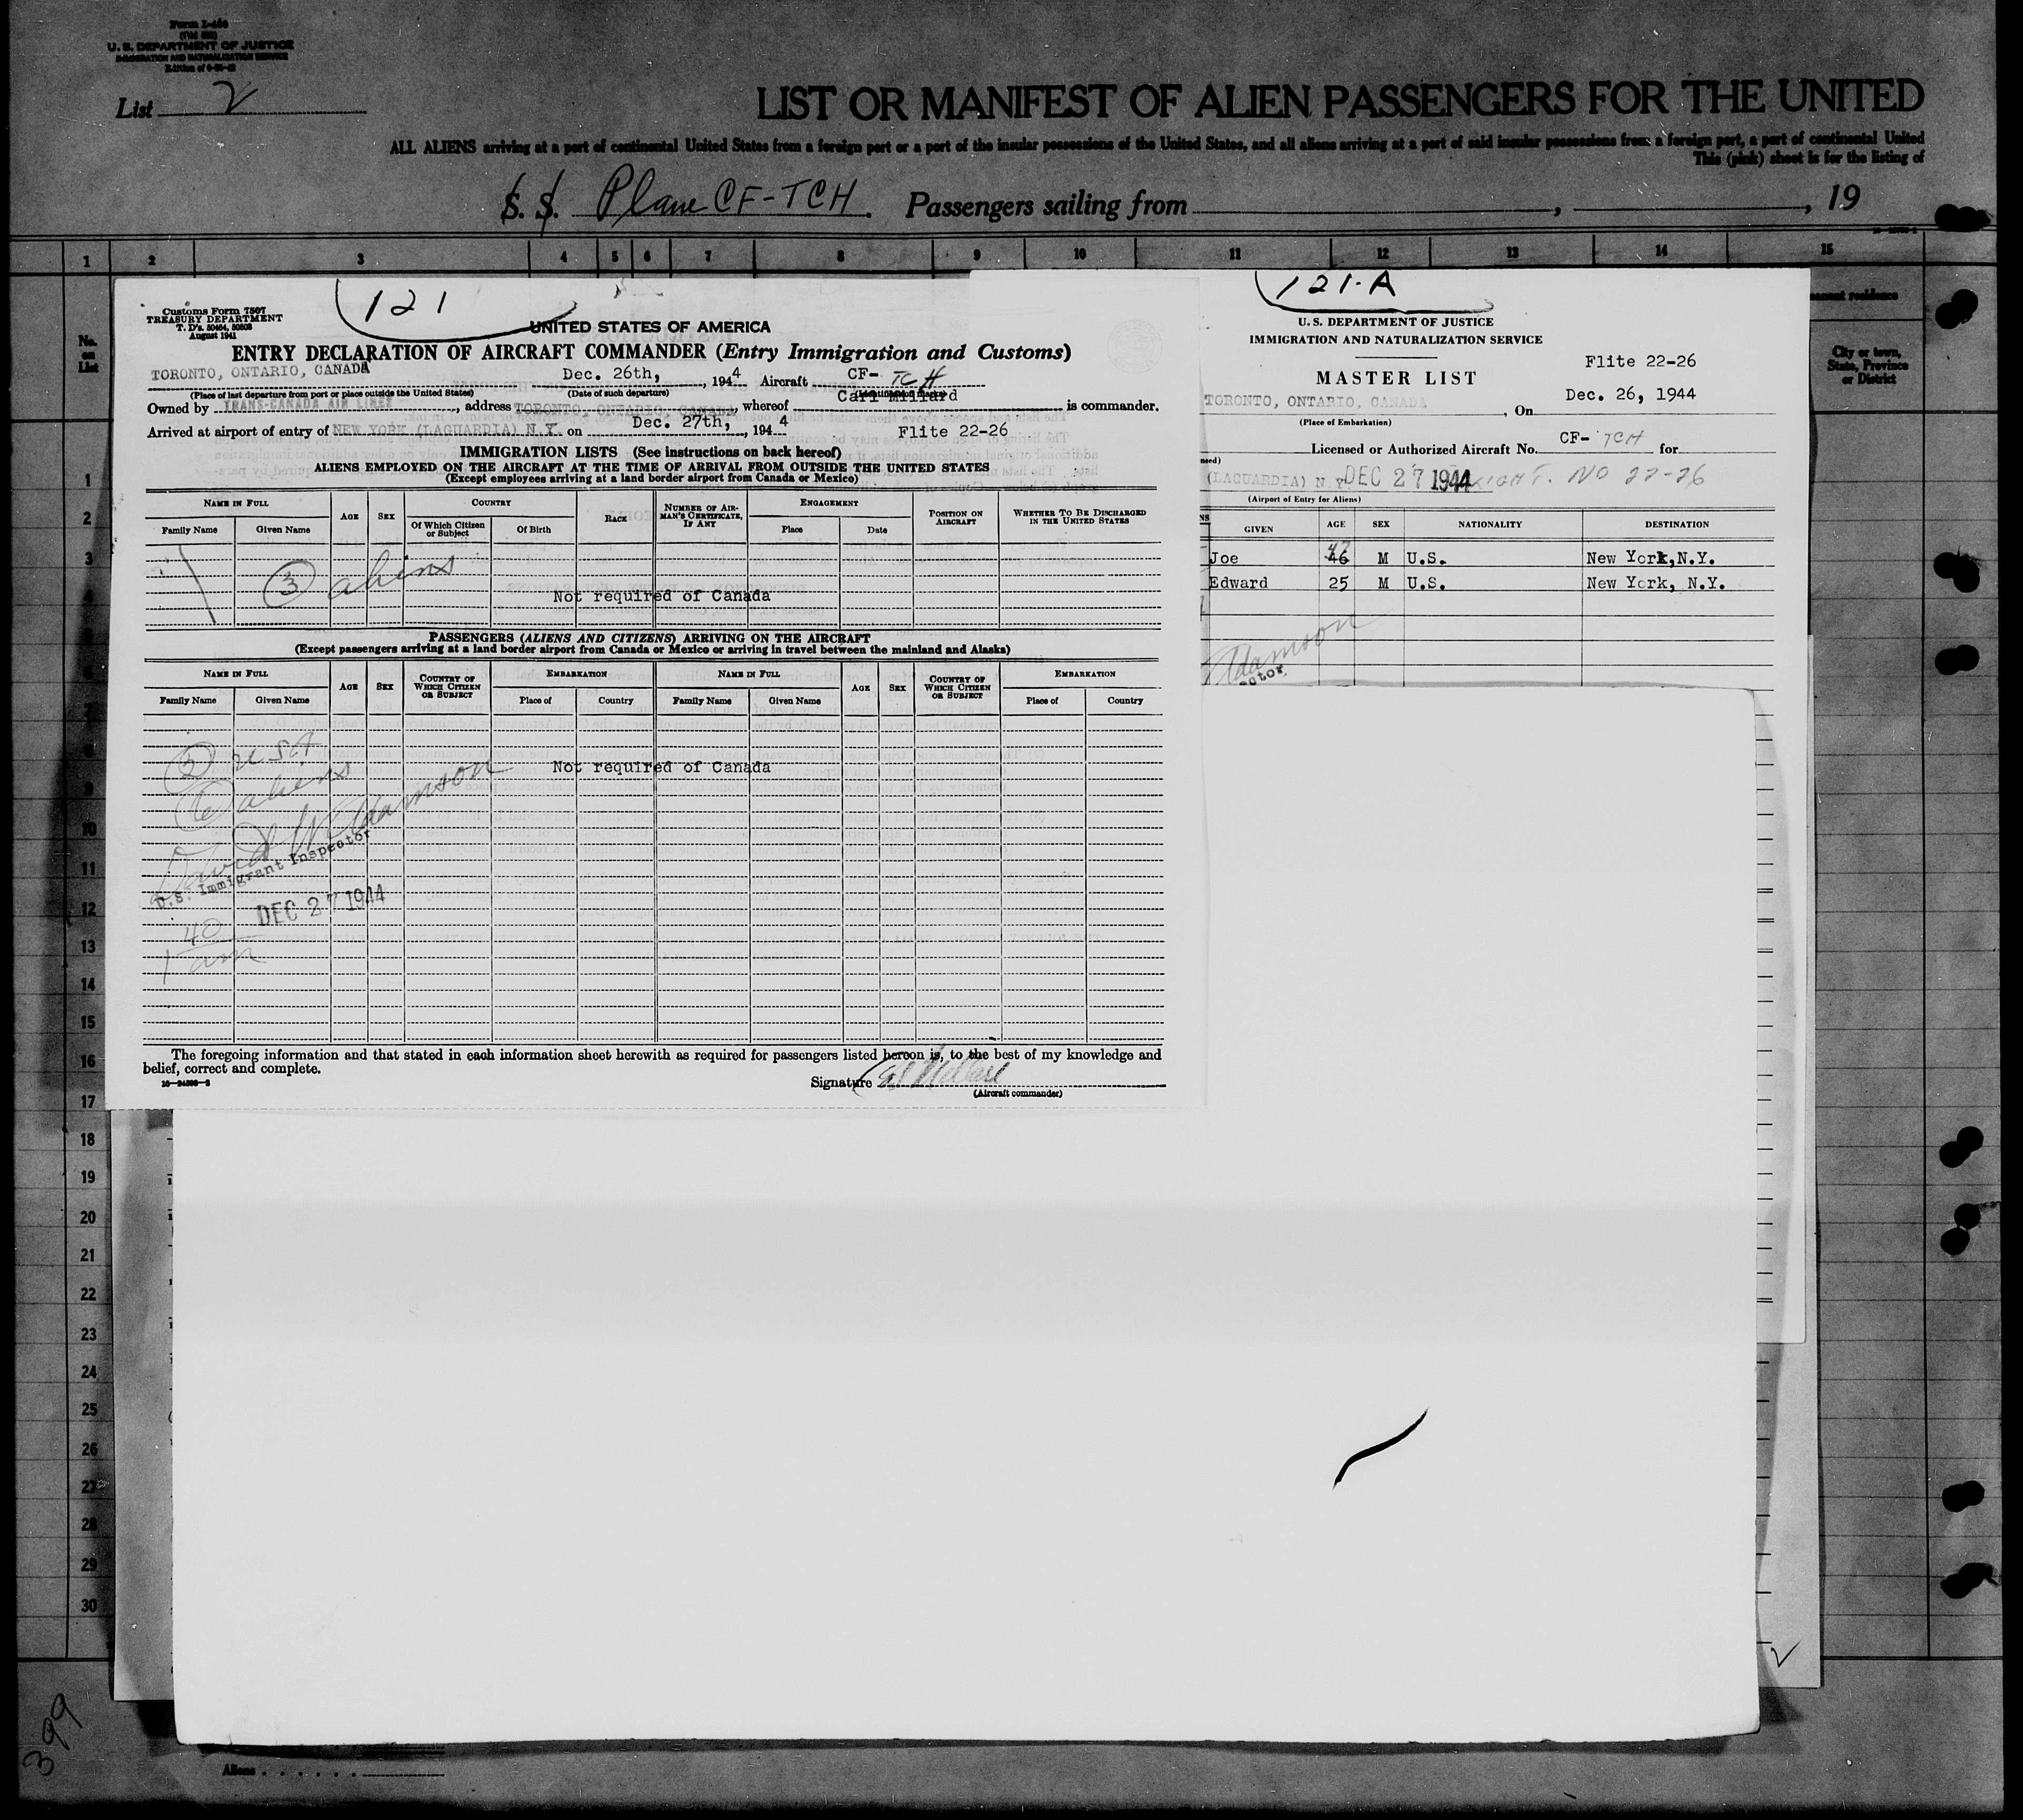 Form I-466
U. S. DEPARTMENT OF JUSTICE
IMMIGRATION AND NATURALIZATION SERVICE
List 2
LIST OR MANIFEST OF ALIEN PASSENGERS FOR THE UNITED
ALL ALIENS arriving at a port of continental United States from a foreign port or a port of the insular possessions of the United States, and all aliens arriving at a port of said insular possessions from a foreign port, a port of continental United
This (pink) sheet is for the listing of
S. S. Plane CF-TCH. Passengers sailing from , , 19
1 2 3 4 5 6 7 8 9 10 11 12 13 14 15
No. on List
permanent residence
City or town, State, Province or District
121
Customs Form 7507
TREASURY DEPARTMENT
T. D's. 50464, 50502
August 1941
UNITED STATES OF AMERICA
ENTRY DECLARATION OF AIRCRAFT COMMANDER (Entry Immigration and Customs)
TORONTO, ONTARIO, CANADA Dec. 26th, , 1944 Aircraft CF- TCH
(Place of last departure from port or place outside the United States) (Date of such departure) (Identification marks)
Owned by TRANS-CANADA AIR LINES, address TORONTO, ONTARIO, CANADA, whereof Carl Millard is commander.
Arrived at airport of entry of NEW YORK (LAGUARDIA) N.Y. on Dec. 27th, , 1944 Flite 22-26
IMMIGRATION LISTS (See instructions on back hereof)
ALIENS EMPLOYED ON THE AIRCRAFT AT THE TIME OF ARRIVAL FROM OUTSIDE THE UNITED STATES
(Except employees arriving at a land border airport from Canada or Mexico)
NAME IN FULL AGE SEX COUNTRY RACE NUMBER OF AIRMAN'S CERTIFICATE, IF ANY ENGAGEMENT POSITION ON AIRCRAFT WHETHER TO BE DISCHARGED IN THE UNITED STATES
Family Name Given Name Of Which Citizen or Subject Of Birth Place Date
3 aliens
Not required of Canada
PASSENGERS (ALIENS AND CITIZENS) ARRIVING ON THE AIRCRAFT
(Except passengers arriving at a land border airport from Canada or Mexico or arriving in travel between the mainland and Alaska)
NAME IN FULL AGE SEX COUNTRY OF WHICH CITIZEN OR SUBJECT EMBARKATION NAME IN FULL AGE SEX COUNTRY OF WHICH CITIZEN OR SUBJECT EMBARKATION
Family Name Given Name Place of Country Family Name Given Name Place of Country
USA
Not required of Canada
aliens
David W Adamson
U.S. Immigrant Inspector
DEC 27 1944
40
1 am
The foregoing information and that stated in each information sheet herewith as required for passengers listed hereon is, to the best of my knowledge and
belief, correct and complete.
Signature Carl Millard
(Aircraft commander)
121-A
U. S. DEPARTMENT OF JUSTICE
IMMIGRATION AND NATURALIZATION SERVICE
Flite 22-26
MASTER LIST
TORONTO, ONTARIO, CANADA , On Dec. 26, 1944
(Place of Embarkation)
Licensed or Authorized Aircraft No. CF- TCH for
(LAGUARDIA) N.Y. DEC 27 1944 FLIGHT. NO 22-26
(Airport of Entry for Aliens)
GIVEN AGE SEX NATIONALITY DESTINATION
Joe 46 47 M U.S. New York,N.Y.
Edward 25 M U.S. New York, N.Y.
Adamson
1
2
3
4
5
6
7
8
9
10
11
12
13
14
15
16
17
18
19
20
21
22
23
24
25
26
27
28
29
30
399
Aliens